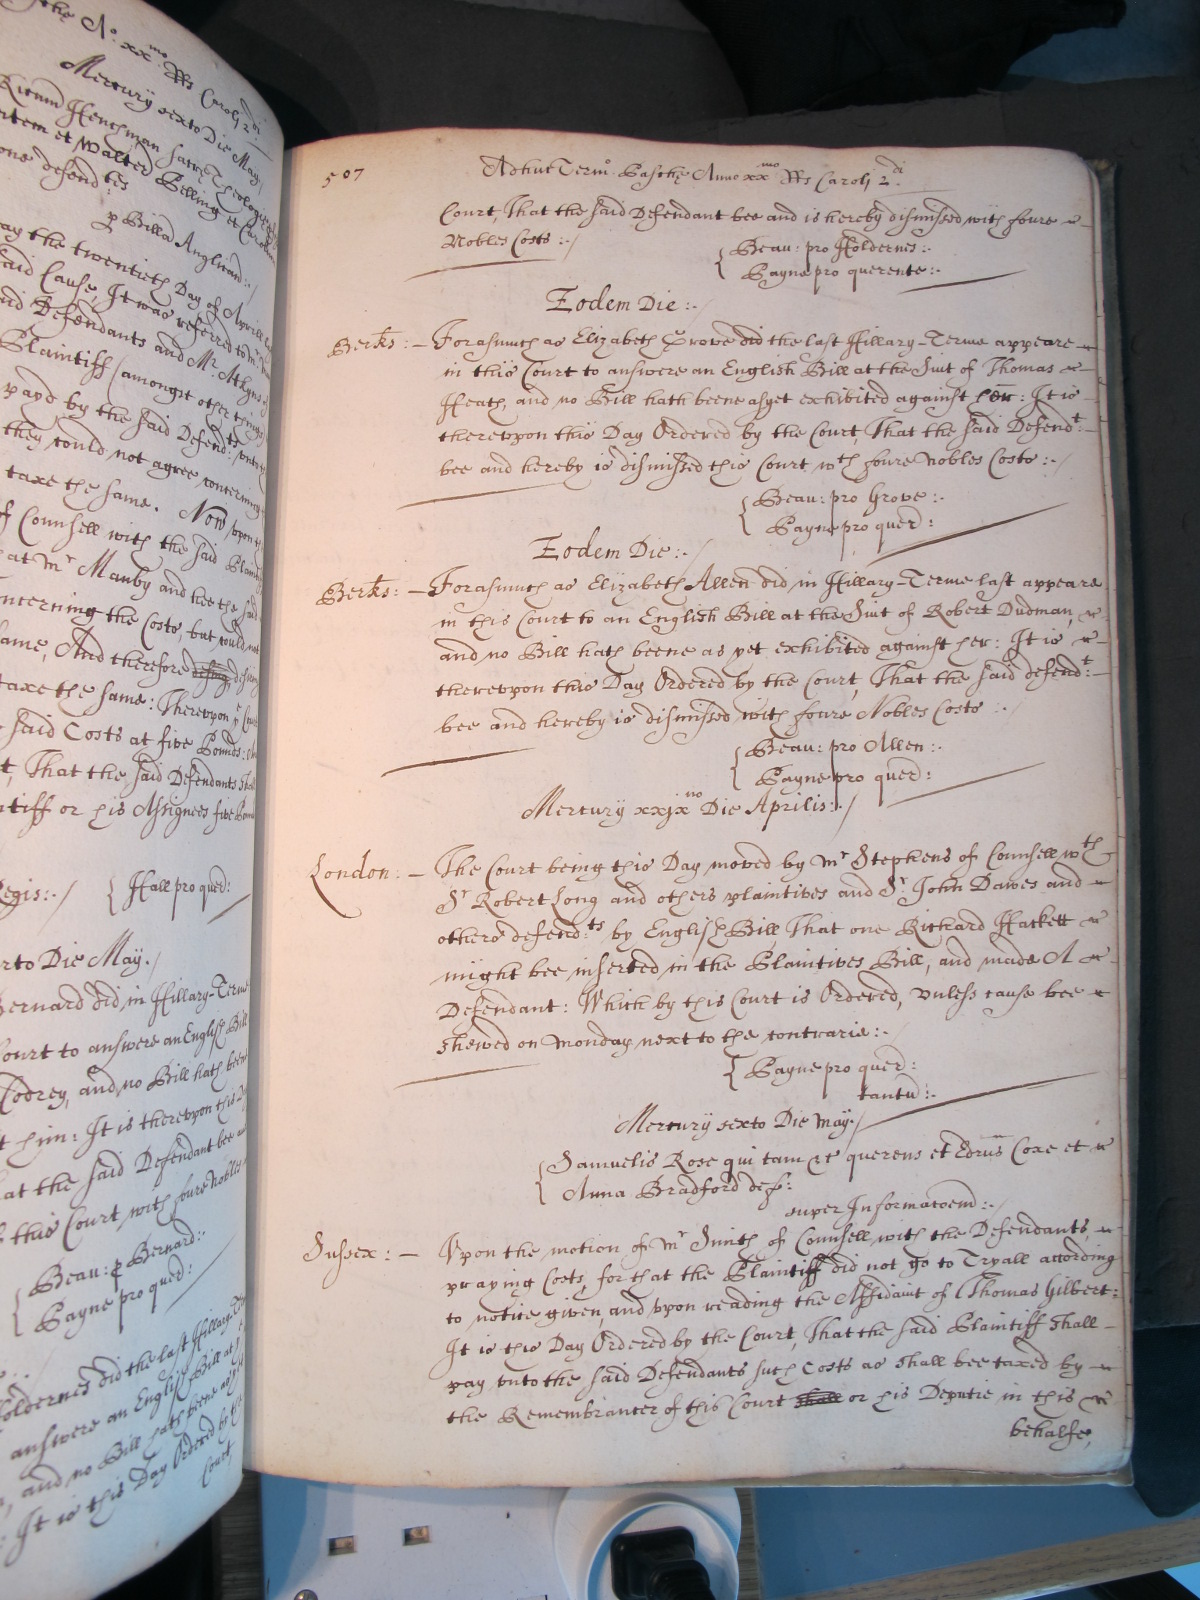 the Ao xxmo Rs Caroli 2di
Mercurij sexto Die May
Henchman sacre Theologie
et Walter Billing et
defendtes
p Billa Anglican:
the twentieth Day of Aprill
said Cause, It was referred to mr
said Defendants and Mr. Atkyns
Plaintiff (amongst other things
payd by the said Defendts: unto
they could not agree concerning
taxe the same. Now upon
of Counsell with the said Plain
at mr Manby and hee the said
concerning the Costs, but could not
same, And therefore desir
taxe the same: Thereupon
said Costs at five Pounds:
That the said Defendants shall
Plaintiff or his Assignees five
Regis:./ Hall pro quer:
Die May./
Bernard did in Hillary-Terme
Court to answere an English Bill
Codrey, and no Bill hath beene
him: It is thereupon this
at the said Defendant bee
this Court with foure Nobles
Beau: p Bernard:
Payne pro quer:
Holdernes did the last Hillary-
answere an English Bill at
and no Bill hath beene as yet
It is this Day Ordered by the
Court,
507 Adhuc Termo Pasche Anno xxmo Rs Caroli 2di.
Court, That the said Defendant bee and is hereby dismissed with foure
Nobles Costs :./
Beau: pro Holdernes:.
Payne pro querente:.
Eodem Die :./
Berks: - Forasmuch as Elizabeth Grove did the last Hillary-Terme appeare
in this Court to answere an English Bill at the Suit of Thomas
Heath, and no Bill hath beene as yet exhibited against her: It is
thereupon this Day Ordered by the Court, That the said Defendt:
bee and hereby is dismissed this Court wth foure Nobles Costs :./
Beau: pro Grove :.
Payne pro quer:
Eodem Die :./
Berks: - Forasmuch as Elizabeth Allen did in Hillary-Terme last appeare
in this Court to an English Bill at the Suit of Robert Dudman,
and no Bill hath beene as yet exhibited against her: It is
thereupon this Day Ordered by the Court, That the said defendt:
bee and hereby is dismissed with foure Nobles Costs :./
Beau: pro Allen:.
Payne pro quer:
Mercurij xxixno Die Aprilis:./
London: - The Court being this Day moved by mr Stephens of Counsell wth
Sr Robert Long and others plaintives and Sr. John Dawes and
others defendts: by English Bill, That one Richard Hackett
might bee inserted in the Plaintives Bill, and made A
Defendant: Which by this Court is Ordered, unless cause bee
shewed on Monday next to the contrarie:.
Payne pro quer:
tantu:.
Mercurij sexto Die May./
Samuelis Rose qui tam &c querens et Edrus Coxe et
Anna Bradford def:
super Informacoem:./
Sussex: - Upon the motion of mr Smith of Counsell with the Defendants,
praying Costs, for that the Plaintiff did not go to Tryall according
to notice given, and upon reading the Affidavit of Thomas Gilbert:
It is this Day Ordered by the Court, That the said Plaintiff shall
pay unto the said Defendants such Costs as shall bee taxed by
the Remembrancer of this Court shall or his Deputie in this
behalfe,